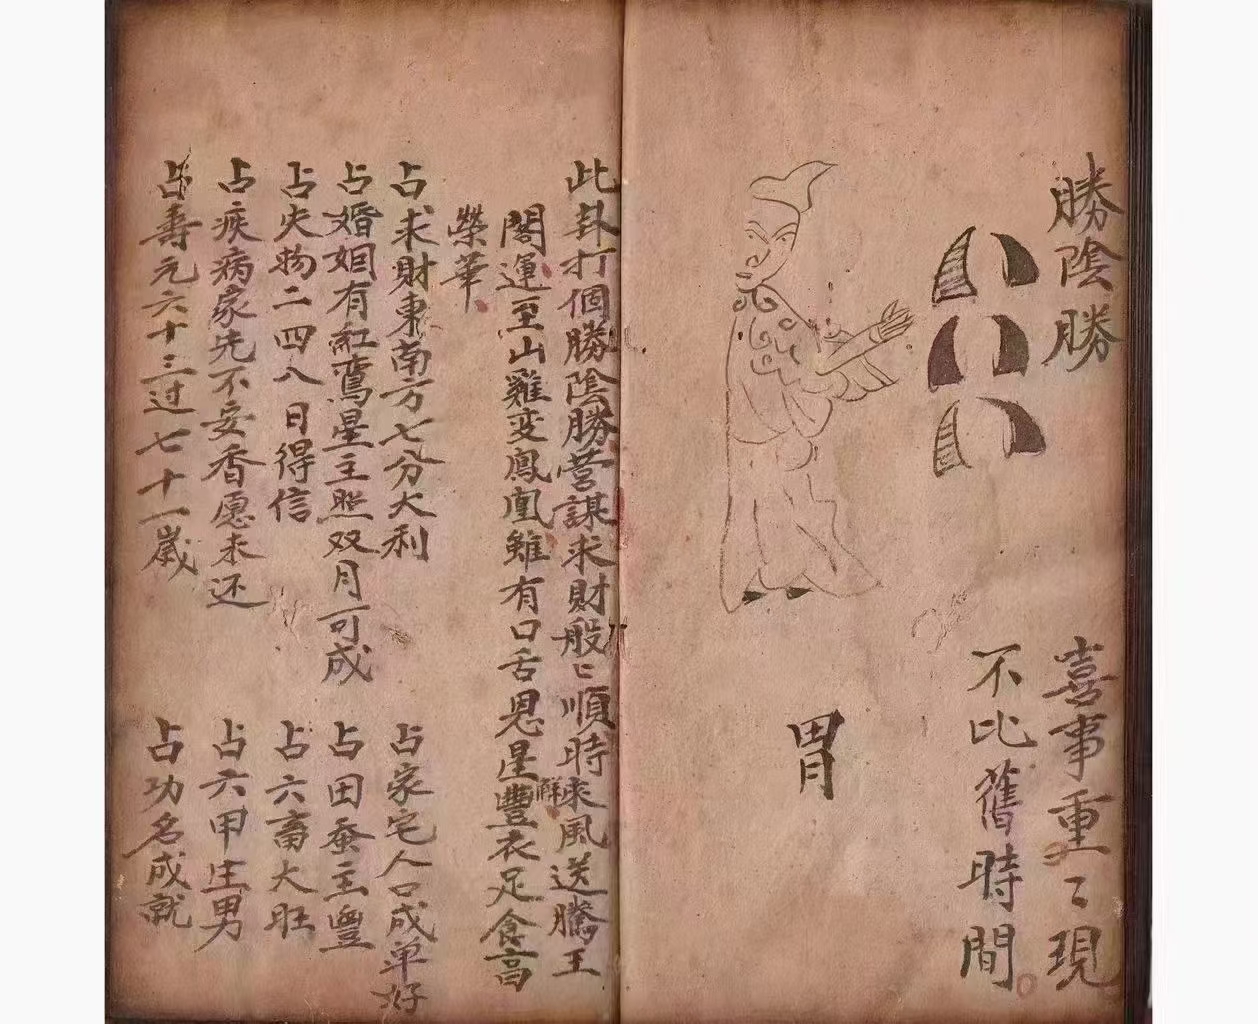 勝陰勝
喜事重〻現
不比舊時間
胃
此卦打個勝陰勝營謀求財般〻順時來風送騰王
閣運至山雞变鳳凰雖有口舌恩星解豐衣足食富
榮華
占求財東南方七分大利
占婚姻有紅鸞星主照双月可成
占失物二四八日得信
占疾病家先不安香愿未还
占壽元六十三过七十一歲
占家宅人口成单好
占田蚕主豐
占六畜大旺
占六甲庄男
占功名成就